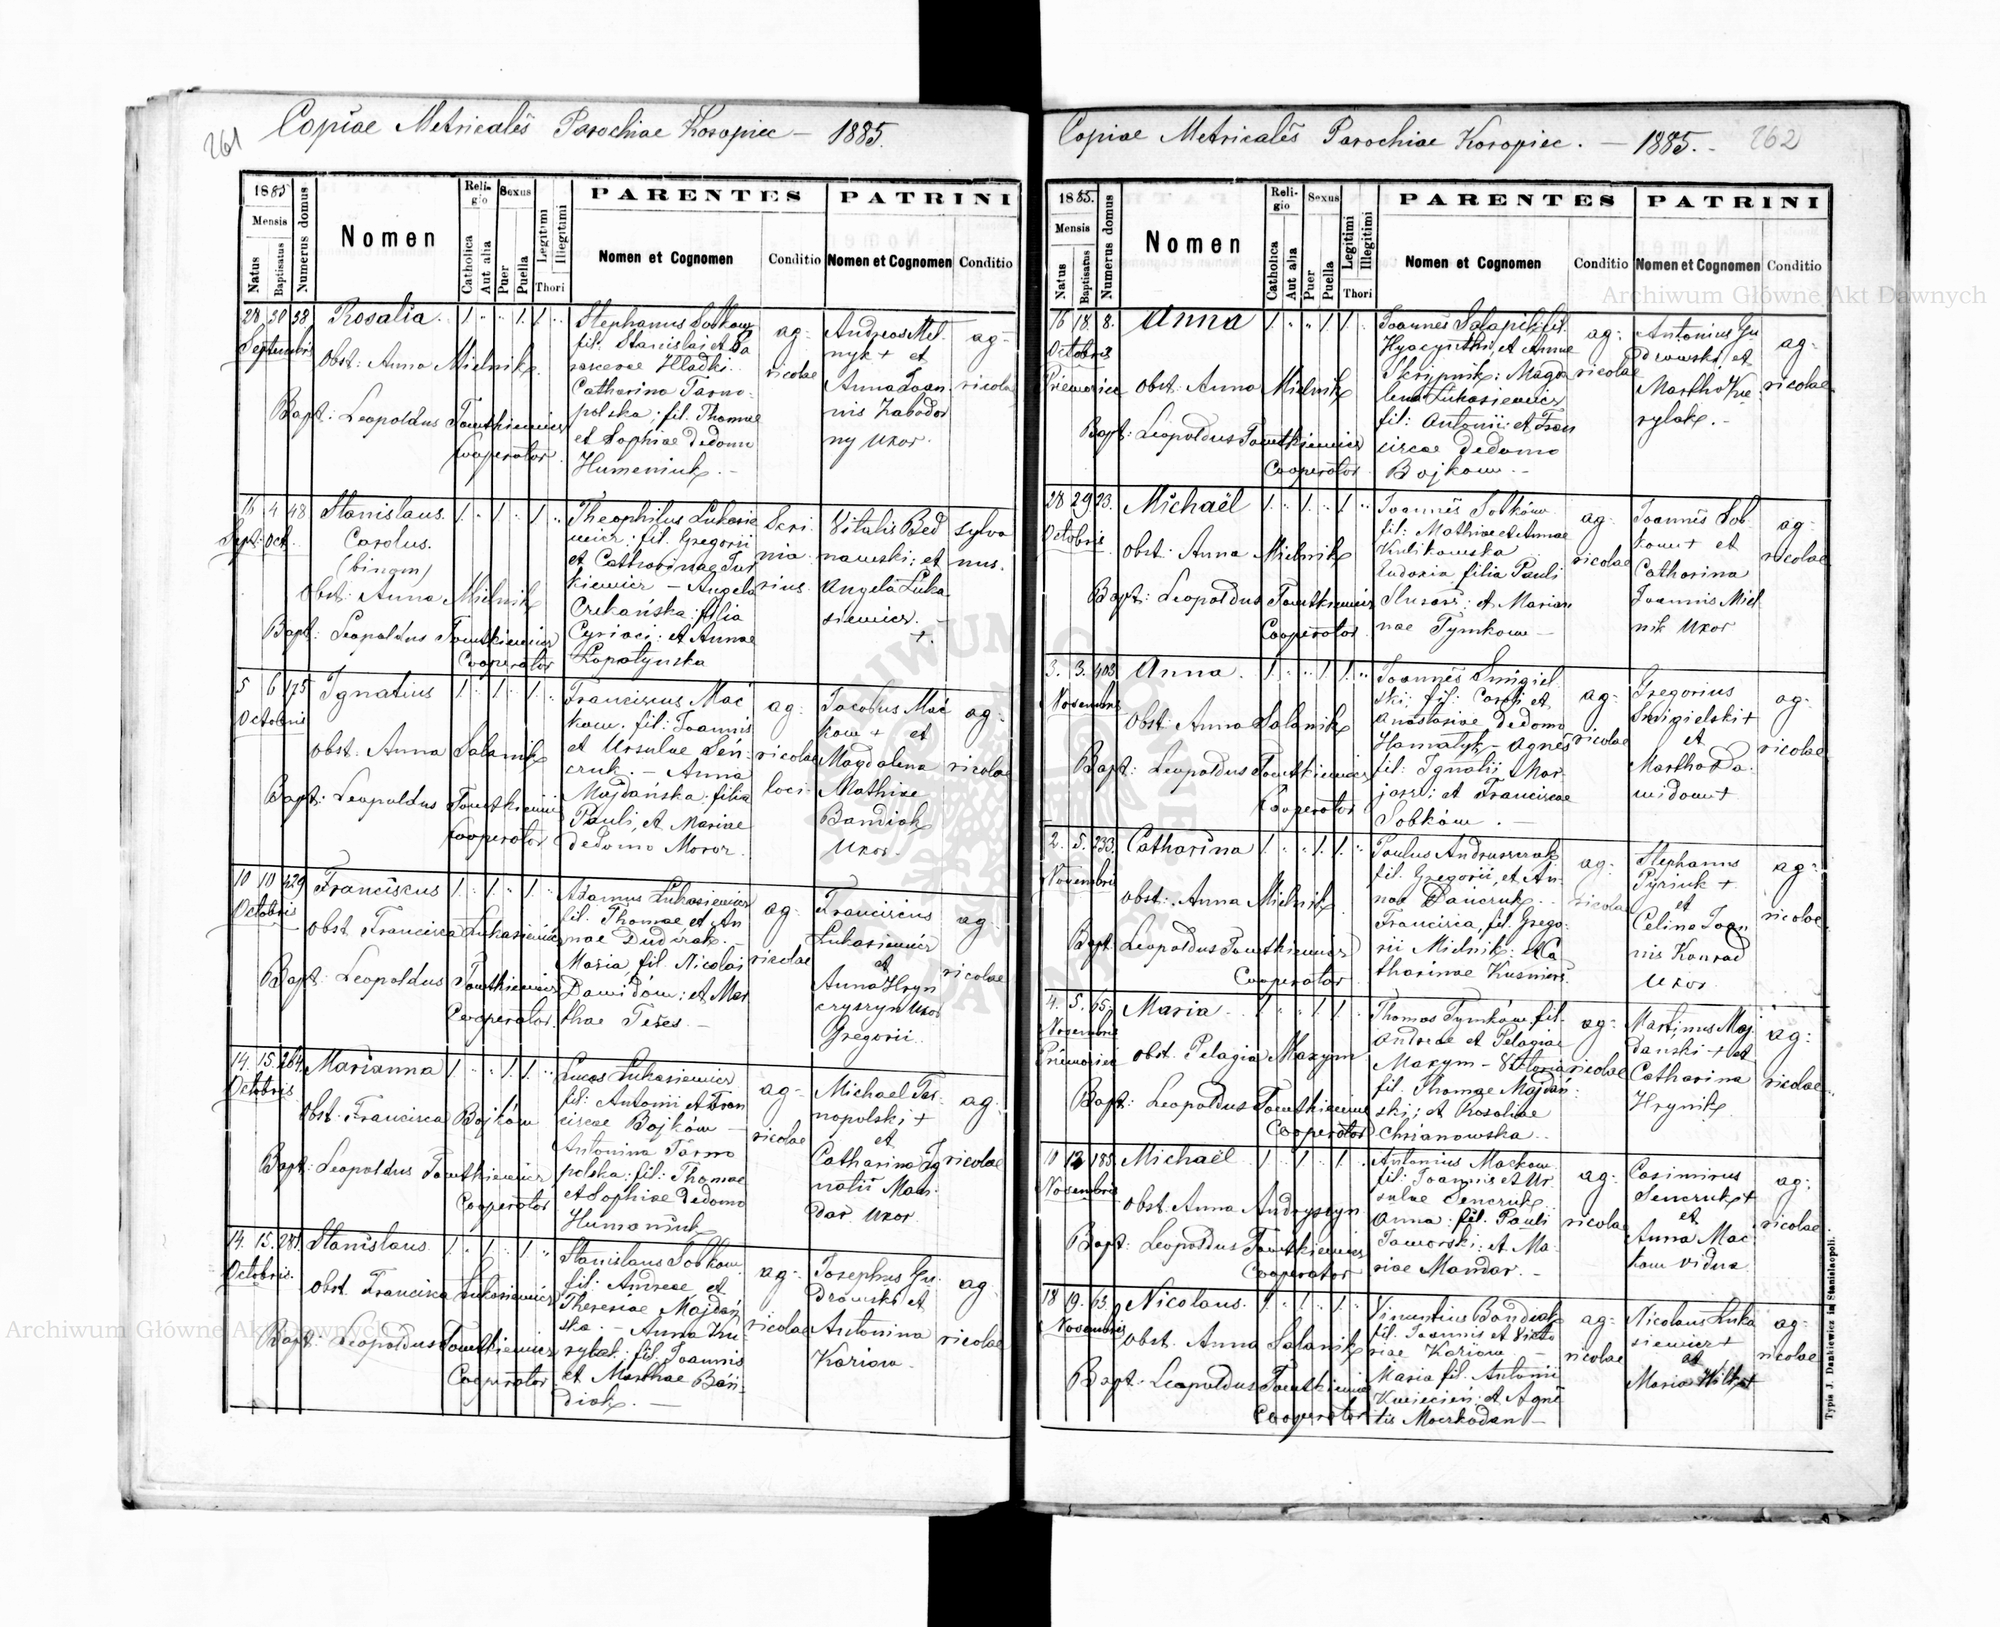 261
Copiae Metricales Parochiae Koropiec – 1885.
1885
Mensis
Natus
Baptisatus
Numerus domus
Nomen
Religio
Catholica
Aut alia
Sexus
Puer
Puella
Legitimi
Illegitimi
Thori
PARENTES
Nomen et Cognomen
Conditio
PATRINI
Nomen et Cognomen
Conditio
28 30 38 Rosalia. 1 " " 1. 1. "
Septembris
Obst: Anna Mielnik.
Bapt: Leopoldus
Cooperator.
Stephanus Sobkow
fil: Stanislai et Pa
rascevae Hladki.
Catharina Tarno-
polska; fil. Thomae
et Sophiae dedomo
Humeniuk. –
ag-
ricolae
Andreas Mel-
nyk + et
Anna Joan
nis Zabodor
ny uxor.
ag-
ricolae
16 4 48 Stanislaus. 1. " 1. " 1. "
Sept. Oct.
Carolus.
(binom)
Obst: Anna Mielnik
Bapt: Leopoldus
Cooperator
Theophilus Lukasie
wicz; fil. Gregorii
et Catharinae Tur
kiewicz – Angela
filia
Cyriaci; et Annae
Lopatynska
Scri-
nia-
rius.
Vitalis Bed
narski; et
Angela Luka
siewicz. –
+.
sylva
nus.
5 6 175 Ignatius 1 " 1. " 1. "
Octobris
Obst: Anna Salanik
Bapt: Leopoldus
Cooperator
Franciscus Mac
kow. fil: Joannis
et Ursulae Sen-
czuk. – Anna
Majdańska: filia
Pauli, et Mariae
dedomo Moroz.
ag-
ricolae
loci-
Jacobus Mac
kow + et
Magdalena
Mathiae
Bandiak
uxor.
ag-
ricolae
10 10 429 Franciscus 1 " 1. " 1. "
Octobris
Obst: Francisca Lukasiewicz
Bapt: Leopoldus
Cooperator.
Adamus Lukasiewicz
fil: Thomae et An
nae Dudczak. –
Maria, fil. Nicolai
Dawidow; et Mar
thae –
ag-
ricolae
Franciscus
Lukasiewicz
et
Anna Hryn
uxor
Gregorii.
ag-
ricolae
14. 15. 264. Marianna 1 " " 1. 1. "
Octobris
Obst: Francisca Bojkow
Bapt: Leopoldus
Cooperator
Lucas Lukasiewicz
fil: Antonii et Fran
ciscae Bojkow –
Antonina Tarno
polska: fil: Thomae
et Sophiae dedomo
Humeniuk
ag-
ricolae
Michael Tar-
nopolski +
et
Catharina Ig
natii Man-
dar uxor
ag-
ricolae
14. 15. 281. Stanislaus. 1. " 1. " 1. "
Octobris.
Obst: Francisca Lukasiewicz
Bapt: Leopoldus
Cooperator.
Stanislaus Sobkow
fil: Andreae et
Theresiae Majdań
ska. – Anna Ku-
rylak: fil: Joannis
et Marthae Ban-
diak. –
ag-
ricolae
Josephus Gu-
drowski et
Antonina
Koriow.
ag-
ricolae
262
Copiae Metricales Parochiae Koropiec. – 1885. –
1885.
Mensis
Natus
Baptisatus
Numerus domus
Nomen
Religio
Catholica
Aut alia
Sexus
Puer
Puella
Legitimi
Illegitimi
Thori
PARENTES
Nomen et Cognomen
Conditio
PATRINI
Nomen et Cognomen
Conditio
16 18. 8. Anna 1. " " 1. 1 "
Octobris
Obst: Anna Mielnik
Bapt: Leopoldus
Cooperator
Joannes Salapik fil:
Hyacynthi, et Annae
Skrypnik: Magda
lena Lukasiewicz
fil: Antonii et Fran
ciscae dedomo
Bojkow. –
ag-
ricolae
Antonius Gu
drowski et
Martha Ku-
rylak. –
ag-
ricolae
28 29 23. Michaël 1. " 1. " 1. "
Octobris
Obst: Anna Mielnik
Bapt: Leopoldus
Cooperator
Joannes Sobków
fil: Mathiae et Annae
Kulikowska
Eudoxia, filia Pauli
et Marian
nae Tymkow –
ag-
ricolae
Joannes Sob
kow + et
Catharina
Joannis Miel
nik uxor
ag-
ricolae
3. 3. 403 Anna. 1. " " 1. 1. "
Novembris
Obst: Anna Salanik
Bapt: Leopoldus
Cooperator
Joannes Smigiel
ski; fil: Caroli et
Anastasiae dedomo
Hamalyk – Agnes
fil: Ignatii Mar-
et Franciscae
Sobków. –
ag-
ricolae
Gregorius
Smigielski +
et
Martha Da-
widow +
ag-
ricolae
2. 5. 233. Catharina 1. " " 1. 1. "
Novembris
Obst: Anna Mielnik
Bapt: Leopoldus
Cooperator.
Paulus Andruszczak
fil. Gregorii, et An-
nae –
Francisca, fil. Grego-
rii Mielnik: et Ca
tharinae Kusnierz
ag-
ricolae
Stephanus
Pyriuk +
et
Celina Joan
nis Konrad
uxor
ag-
ricolae
4. 5. 65. Maria 1. " " 1. 1. "
Novembris
Obst. Pelagia Maxym
Bapt: Leopoldus
Cooperator
Thomas Tymków, fil.
Andreae et Pelagiae
Maxym – Victoria
fil. Thomae Majdań
ski; et Rosaliae
Chrzanowska. –
ag-
ricolae
Martinus Maj-
danski + et
Catharina
Hrynik.
ag-
ricolae
10 12 185. Michaël 1. " 1. " 1. "
Novembris
Obst: Anna Andryszyn
Bapt: Leopoldus
Cooperator
Antonius Mackow
fil: Joannis et Ur-
sulae Senczuk.
Anna: fil. Pauli
Jaworski: et Ma-
riae Mandar. –
ag-
ricolae
Casimirus
Senczuk +
et
Anna Mac-
kow vidua
ag-
ricolae
18 19. 63. Nicolaus. 1. " 1. " 1. "
Novembris
Obst. Anna Salanik
Bapt: Leopoldus
Cooperator
Vincentius Bandiak
fil: Joannis et Victo
riae Koriow. –
Maria fil. Antonii
Kwiecień: et Agne
tis –
ag-
ricolae
Nicolaus Luka
siewicz +
et
Maria +
ag-
ricolae
Typis J. Dankiewicz in Stanislaopoli.
Archiwum Główne Akt Dawnych
Archiwum Główne Akt Dawnych